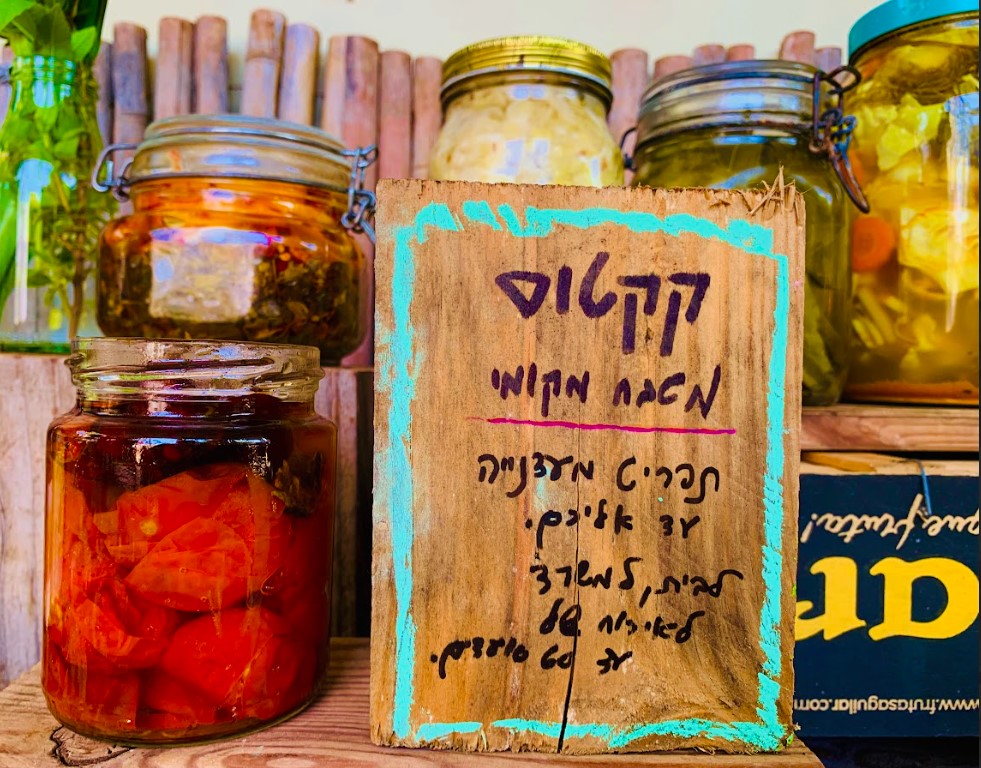 קקטוס
מטבח מקומי
תפריט מעדנייה
עד אליכם.
לבית, למשרד
לאירוח של
עד 50 סועדים.
que fruta!
ar
www.frutasaguilar.com